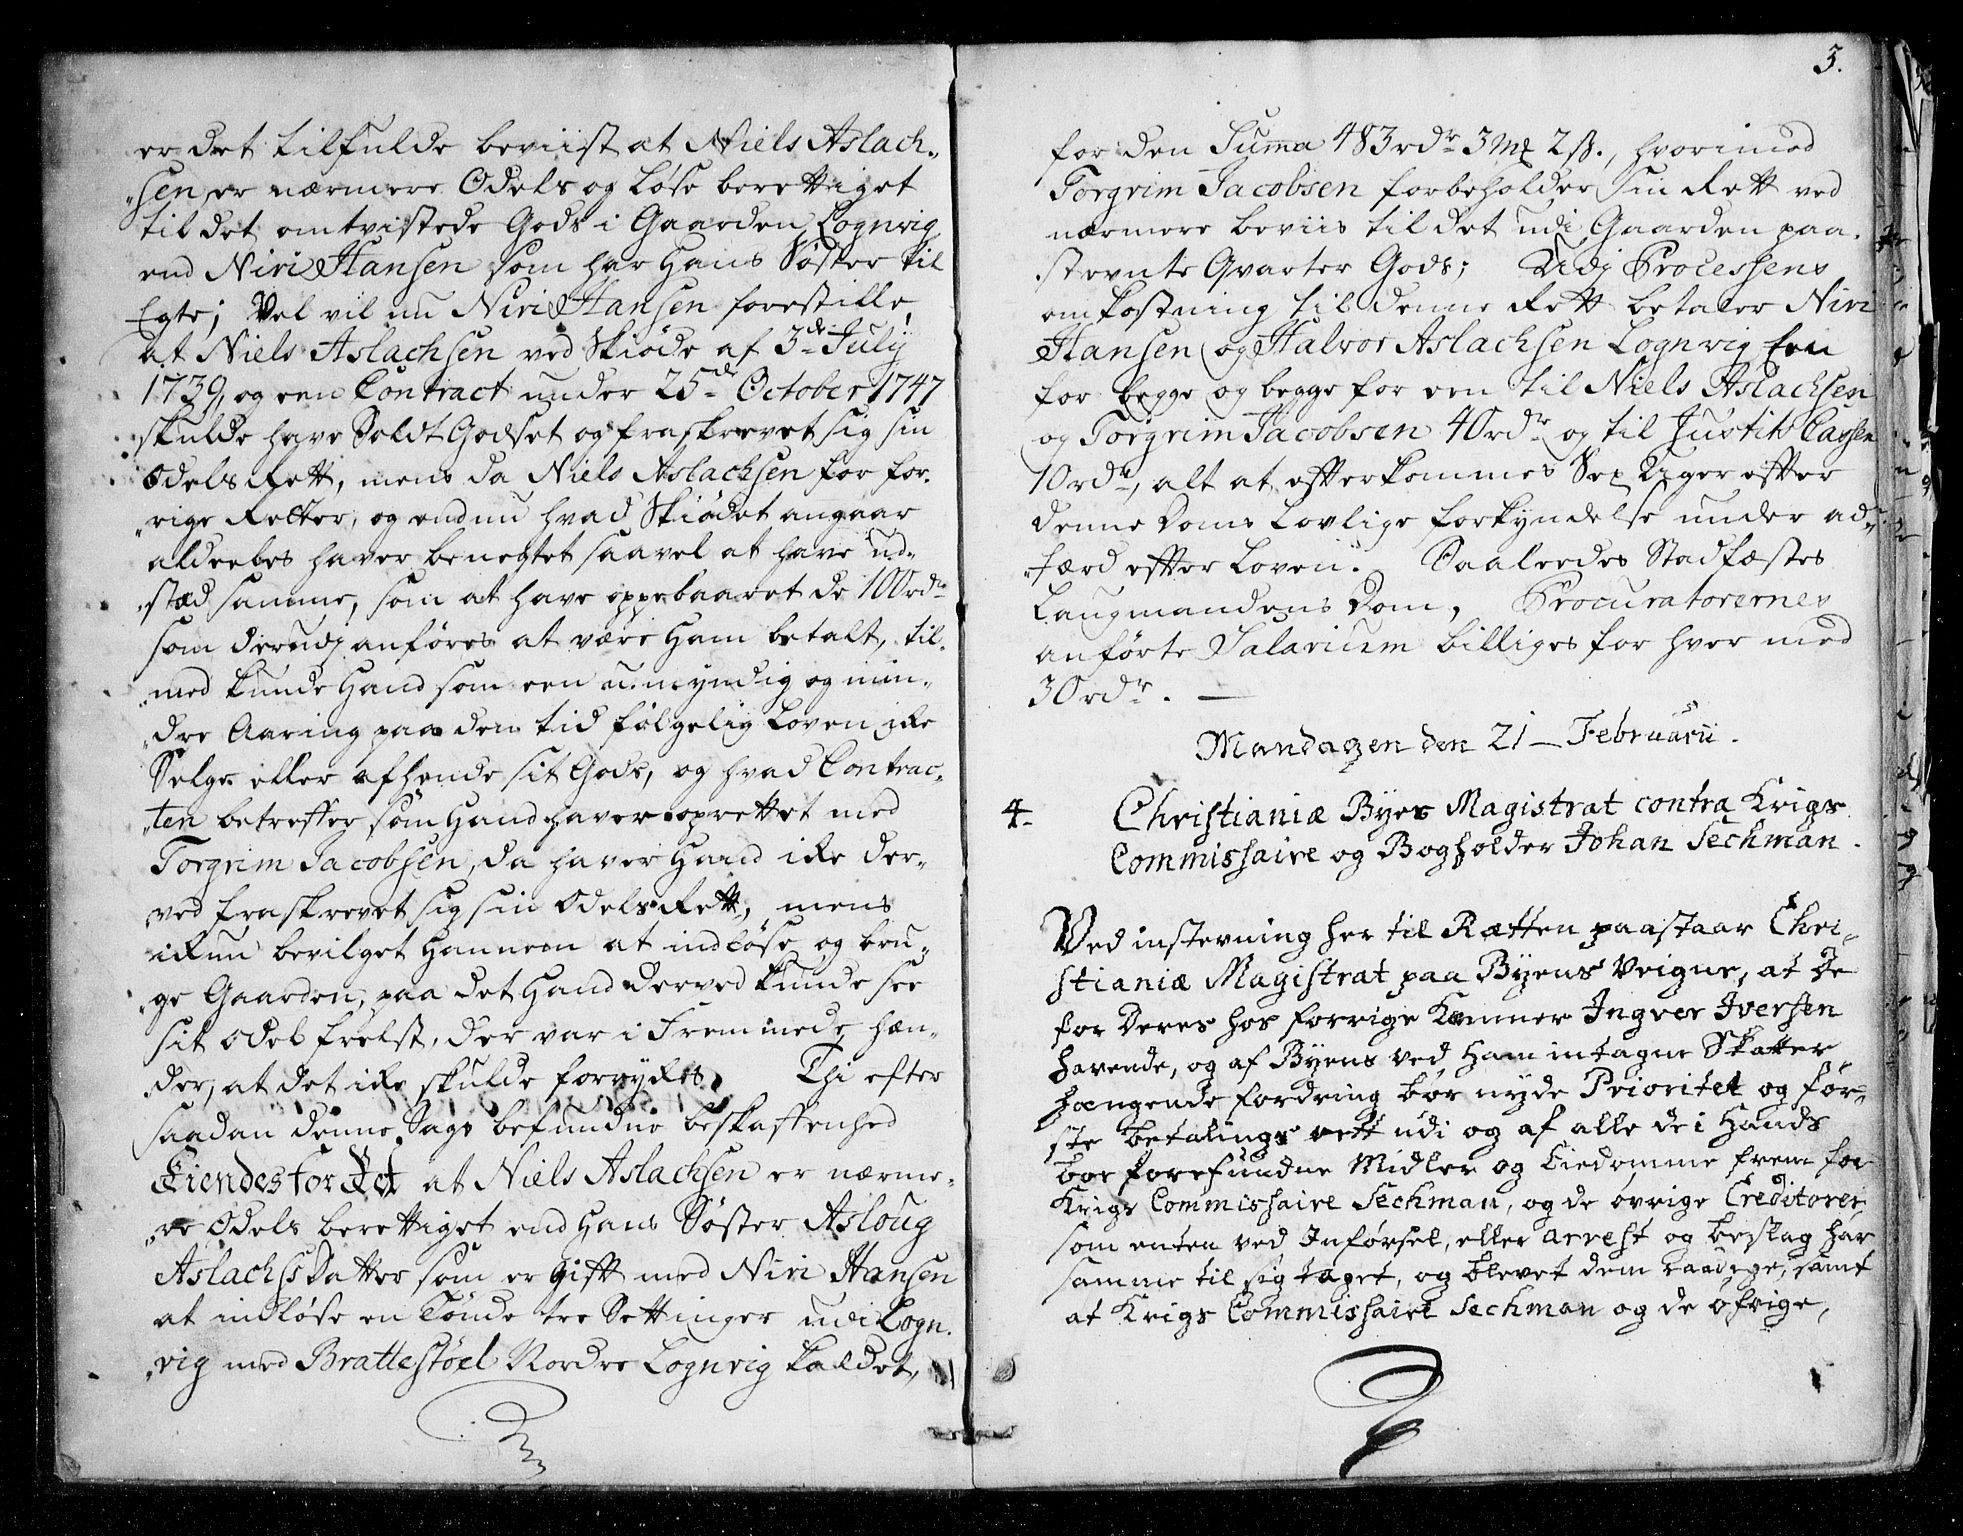 er det tilfulde beviist at Niels Aslach„
„sen, er nærmere Odels og Løse berettiget
til det omtvistede Gods i Gaarden Lognvig
end Niri Hansen som har Hans Søster til
Egte; Vel vil nu Niri Hansen forestille,
at Niels Aslachsen ved Skiøde af 3de July
1739, og een Contract under 25de October 1747
skulde have Soldt Godset og fraskrevet sig sin
Odels Rett, mens da Niels Aslachsen for for„
„rige Retter, og endnu hvad Skiødet angaar
aldeeles haver benegtet saavel at have ud„
„stæd samme, som at have oppebaaret de 100rdr
som derudj anføres at være Ham betalt, til„
„med kunde Hand som een u-myndig og min„
„dre Aaring paa den tid følgelig Loven ike
Selge eller afhende sit Gods, og hvad Contrac„
„ten betreffer som Hand haver oprettet med
Torgrim Jacobsen, da haver Hand ike der„
„ved fraskrevet sig sin Odels Rett, mens
ikun bevilget Hannem at indløse og bru„
„ge Gaarden, paa det Hand derved kunde see
sit Odel frelst, der var i Fremmede hæn„
„der, at det ike skulde forrykes. Thi efter
saadan denne Sags befundne beskaffenhed
Kiendes for Ret at Niels Aslachsen er nærme„
„re Odels berettiget end Hans Søster Asloug
Aslachs Datter som er Gift med Niri Hansen
at indløse en Tønde tre Settinger udi Logn„
„vig med Brattestøel Nordre Lognvig kaldet,
3.
for den Summa 483rdr 3 mk 2 s., hvorimod
Torgrim Jacobsen forbeholder sin Rett ved
nærmere beviis til det udi Gaarden paa„
„stevnte Qvarter Gods; Udj Processens
omkostning til denne Rett betaler Niri
Hansen og Halvor Aslachsen Lognvig Een
for begge og begge for een til Niels Aslachsen
og Torgrim Jacobsen 40rdr og til Justits Cassen
10rdr, alt at efterkommes Sex Uger efter
denne Doms Lovlige forkyndelse under ad„
„færd efter Loven. Saaleedes Stadfæstes
Laugmandens Dom, Procuratorernes
anførte Salarium billiges for hver med
30rdr. —
Mandagen den 21— Februarii.
4.
Christianiæ Byes Magistrat contra Krigs
Commissaire og Bogholder Johan Sechman.
Ved instevning her til Rætten paastaar Chri„
stianiæ Magistrat paa Byens Veigne, at de
for Deres hos forrige Kæmner Ingver Iversen
havende, og af Byens ved Ham intagne Skatter
hængende fordring bør nyde Prioritet og før„
ste betalings rett udi og af alle de i Hands
boe forefundne Midler og Eiedomme frem for
Krigs Commissaire Sechman, og de øvrige Creditorer
som enten ved Inførsel, eller Arrest og beslag har
samme til sig taget, og blevet dem saadege, samt
at Krigs Commissaire Sechman og de øfrige,